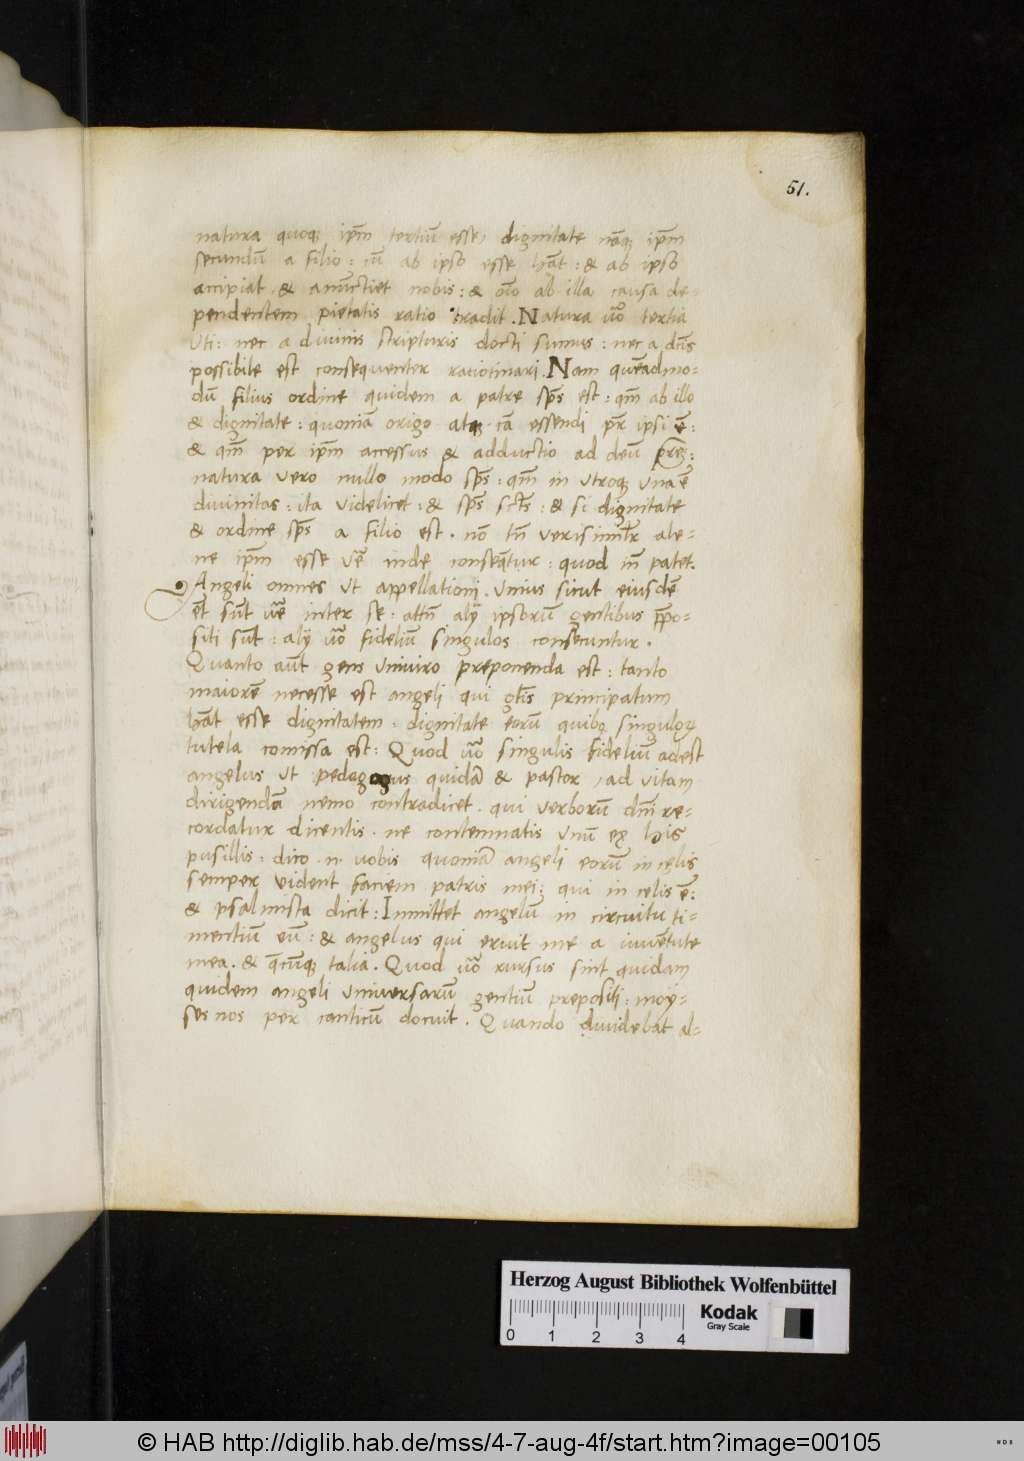 51.
natura quoqꝫ ip̄m tertiū esse, dignitate nāqꝫ ip̄m
secundū a filio : cū ab ipso esse hāt : & ab ipso
accipiat & anūctiet nobis : & oīo ab illa causa de-
pendentem pietatis ratio tradit . Natura u͞o tertia
uti : nec a diuinis scripturis docti sumus : nec a dc̄is
possibile est consequenter ratiotinari . Nam quēadmo-
dū filius ordine quidem a patre sp̄s est : qm̄ ab illo
& dignitate : quoniā origo atqꝫ cā essendi pr̄ ipsi ē :
& qm̄ per ip̄m accessus & adductio ad deū prēꝫ :
natura vero nullo modo sp̄s : qm̄ in vtroqꝫ vna ē
diuinitas : ita videlicet : & sp̄s sct̄s : & si dignitate
& ordine sp̄s a filio est . nō tn̄ verisimilr̄ ale-
ne ip̄m esse vē inde conseq̄tur : quod in̄ patet.
Angeli omnes vt appellationj . vnius sicut eiusdē
ēt sūt uāe inter se : attn̄ alij ipsorū gentibus p̄po-
siti sūt : alij uāo fidelium singulos consecuntur .
Quanto aūt gens vniuiro preponenda est : tanto
maiorē necesse est angeli qui gt̄is principatum
hāt esse dignitatem . dignitate eorū quibꝫ singuloꝝ
tutela comissa est : Quod uāo singulis fideliū adest
angelus vt pedagogus quidā & pastor , ad vitam
dirigendā nemo contradicet . qui verborū dn̄i re-
cordatur dicentis . ne contemnatis vnū ex his
pusillis : dico . n . uobis quoniā angeli eorū in cęlis
semper vident faciem patris mei : qui in celis ē :
& psalmista dicit : Inmittet angelū in circuitu ti-
mentiū eū : & angelus qui eruit me a iuuētute
mea . & q̄cūqꝫ talia . Quod uāo rursus sint quidam
quidem angeli vniuersarū gentiū prepositi : moÿ-
ses nos per canticū docuit . Quando diuidebat al-
Herzog August Bibliothek Wolfenbüttel
0 1 2 3 4
Kodak
Gray Scale
© HAB http://diglib.hab.de/mss/4-7-aug-4f/start.htm?image=00105